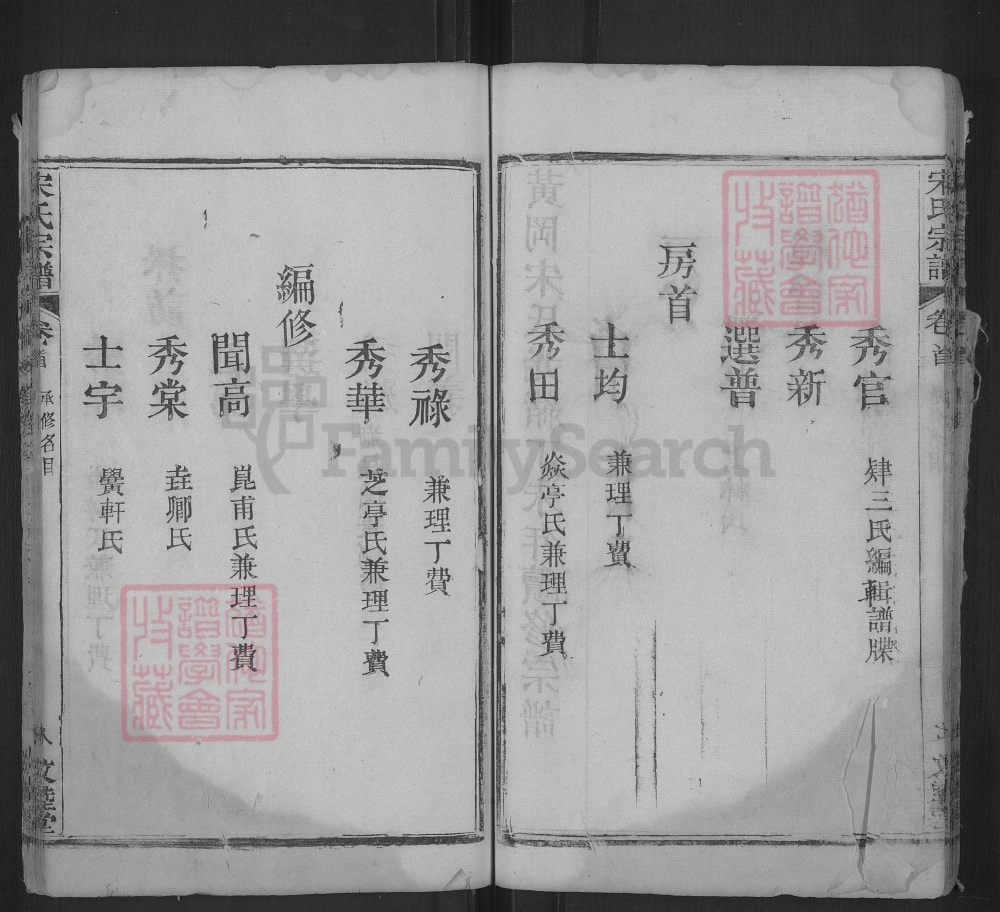 宋氏宗譜 卷首
秀官 肄三氏編輯譜牒
秀新
選普
房首
士均 兼理丁費
秀田 焱亭氏兼理丁費
秀祿 兼理丁費
秀華 芝亭氏兼理丁費
編修
聞高 崑甫氏兼理丁費
秀棠 垚卿氏
士宇 黌軒氏
宋氏宗譜 卷首 承修名目 敦睦堂
FamilySearch